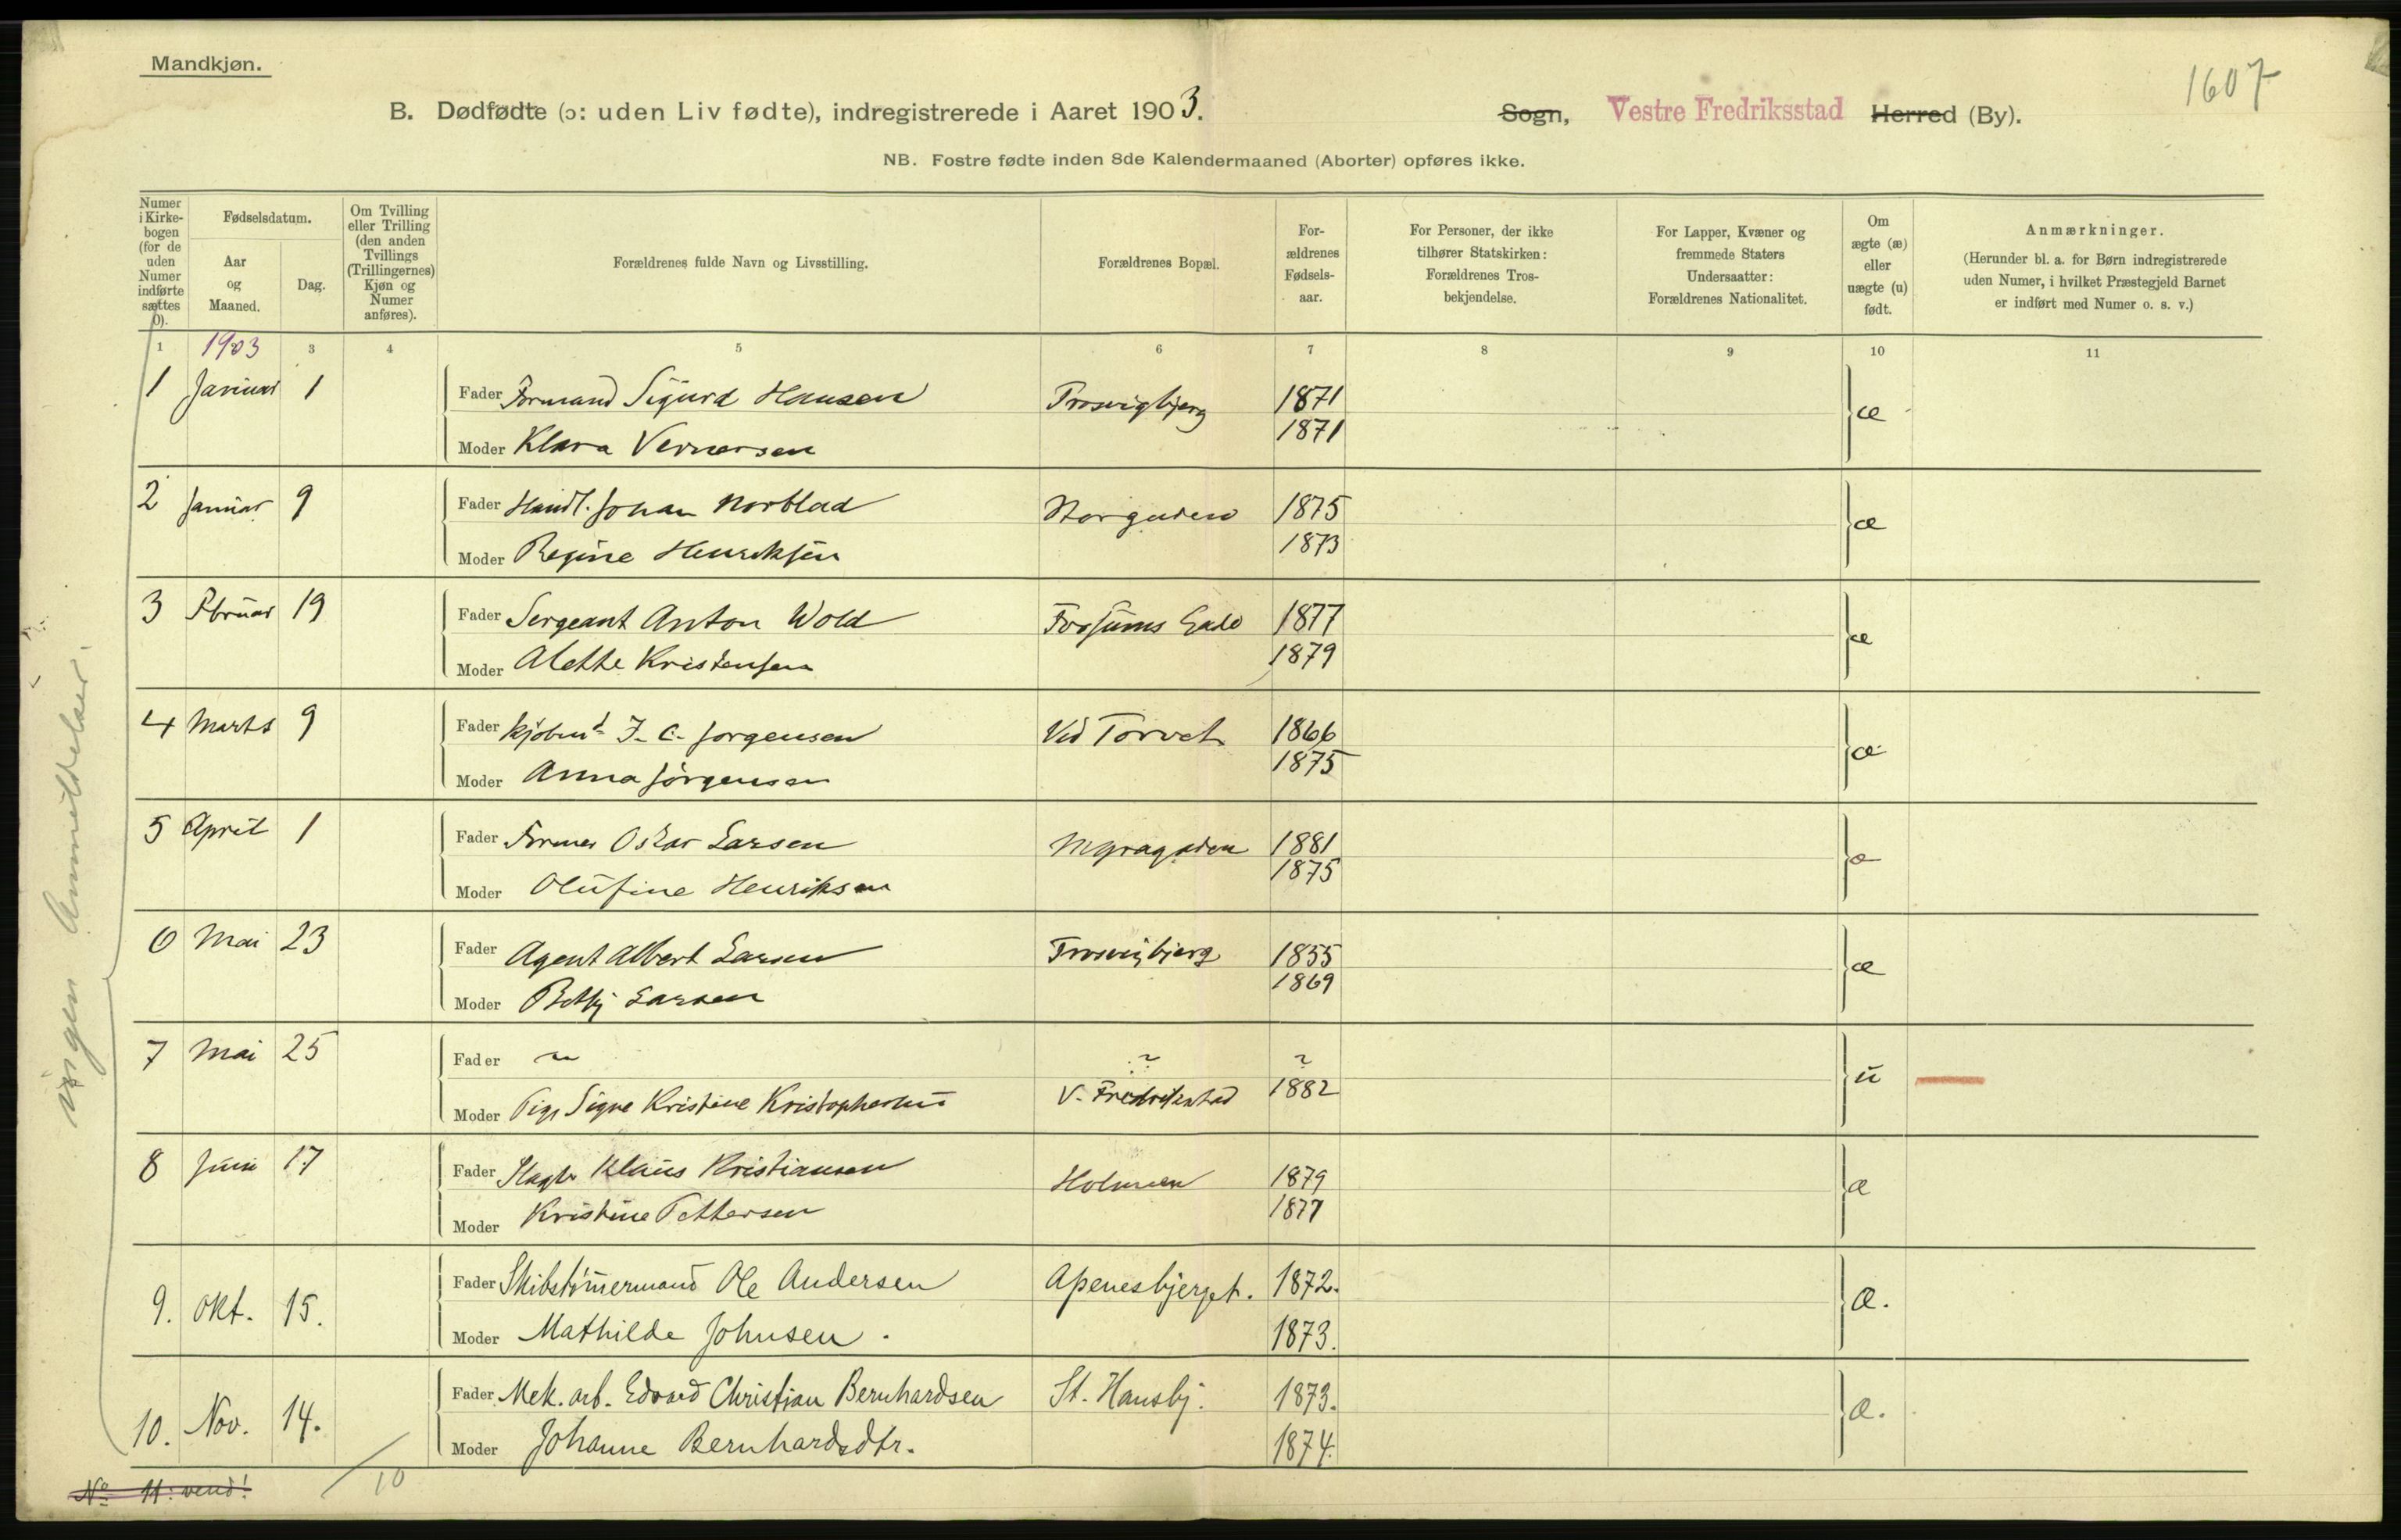 Mandkjøn.
1607
B. Dødfødte (ɔ: uden Liv fødte), indregistrerede i Aaret 1903. Sogn, Vestre Fredriksstad Herred (By).
NB. Fostre fødte inden 8de Kalendermaaned (Aborter) opføres ikke.
Numer i Kirkebogen (for de uden Numer indførte sættes 0).
Fødselsdatum.
Aar og Maaned.
Dag.
Om Tvilling eller Trilling (den anden Tvillings (Trillingernes) Kjøn og Numer anføres).
Forældrenes fulde Navn og Livsstilling.
Forældrenes Bopæl.
Forældrenes Fødselsaar.
For Personer, der ikke tilhører Statskirken: Forældrenes Trosbekjendelse.
For Lapper, Kvæner og fremmede Staters Undersaatter: Forældrenes Nationalitet.
Om ægte (æ) eller uægte (u) født.
Anmærkninger.
(Herunder bl. a. for Børn indregistrerede uden Numer, i hvilket Præstegjeld Barnet er indført med Numer o. s. v.)
1 1903 3 4 5 6 7 8 9 10 11
1 Januar 1 Fader Formand Sigurd Hansen Trosvigbjerg 1871 æ
Moder Klara Vernersen 1871
2 Januar 9 Fader Handl. Johan Norblad Storgaden 1875 æ
Moder Regine Henriksen 1873
3 Februar 19 Fader Sergeant Anton Wold Forsums Gade 1877 æ
Moder Alette Kristensen 1879
4 Marts 9 Fader Kjøbmd J. C. Jørgensen Ved Torvet 1866 æ
Moder Anna Jørgensen 1875
5 April 1 Fader Former Oskar Larsen 1881 æ
Moder Olufine Henriksen 1875
6 Mai 23 Fader Agent Albert Larsen Trosvigbjerg 1855 æ
Moder Betsy Larsen 1869
7 Mai 25 Fader ~ ? ?
Moder Pige Signe Kristine Kristophersen V. Fredrikstad 1882 u
8 Juni 17 Fader Slagter Klaus Kristiansen Holmen 1879 æ
Moder Kristine Pettersen 1877
9. Okt. 15. Fader Skibstømermand Ole Andersen Apenesbjerget. 1872. æ.
Moder Mathilde Johnsen. 1873.
10. Nov. 14. Fader Mek. arb. Edvard Christian Bernhardsen St. Hansbj. 1873. æ.
Moder Johanne Bernhardsdtr. 1874.
No 11: vend!
10
ingen Anmeldelser.